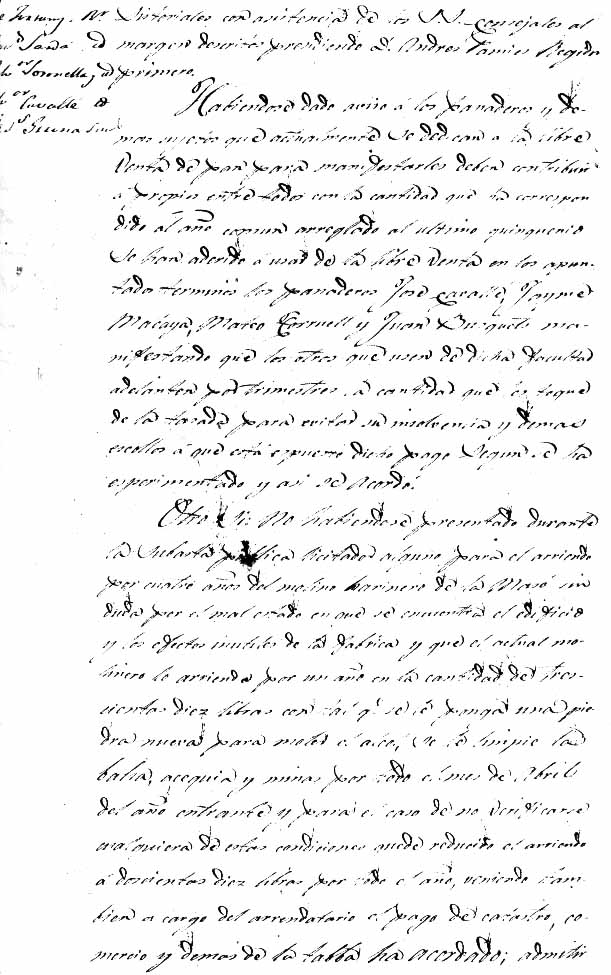 Vitoriales con asistencia de los SS. Consejales al
margen descritos presidiendo D. Andres Tamies Regidor
primero.
Habiendose dado aviso á los panaderos y de-
mas sujetos que actualmente se dedican a la libre
Venta de pan para manifestarles deben contribuir
a propios entre todos con la cantidad que ha correspon
dido al año comun arreglado al ultimo quinquenio
se han aderido a usar de la libre venta en los apun-
tados terminos los panaderos José Cavallé, Jayme
Macaya, Mateo Borruell y Juan Busquets ma-
nifestando que los otros que usen de dicha facultad
adelanten por trimestres la cantidad que les toque
de la tasada para evitar su insolvencia y demas
escollos á que está espuesto dicho pago segun se ha
esperimentado y asi se acordó.
Otro Si: No habiendose presentado durante
la Subasta publica licitador alguno para el arriendo
por cuatro años del molino harinero de la Masó sin
duda por el mal estado en que se encuentra el edificio
y los efectos inutiles de la fabrica y que el actual mo-
linero le arrienda por un año en la cantidad de tres-
cientas diez libras con tal q.e se le ponga una pie
dra nueva para moler el alcol, se le limpie la
balsa, acequia y minas por todo el mes de Abril
del año entrante y para el caso de no verificarse
cualquiera de estas condiciones quede reducido el arriendo
á doscientas diez libras por todo el año, veniendo tam-
bien a cargo del arrendatario el pago de catastro, co-
mercio y demas de la talla ha acordado; admitir